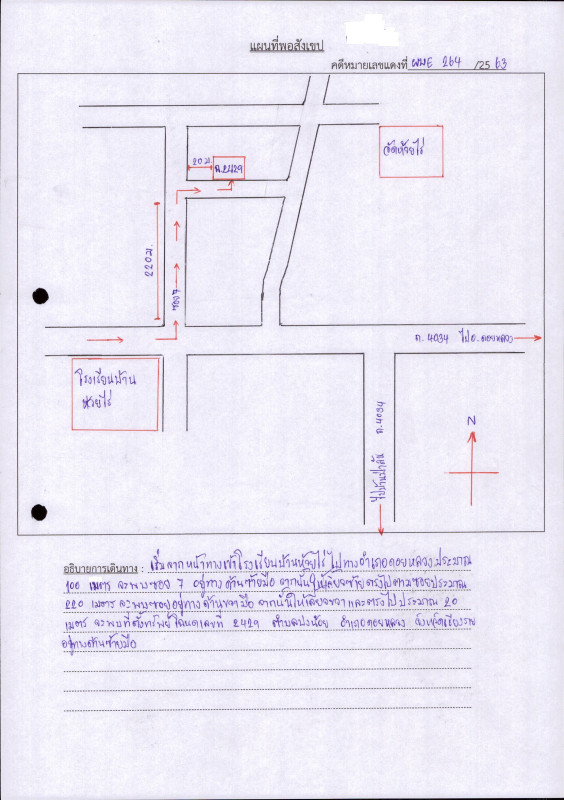 แผนที่พอสังเขป
คดีหมายเลขแดงที่ ผบE 264 /25 63
วัดห้วยไร่
20 ม.
ฉ.2429
220 ม.
ซอย 7
ถ. 4034 ไป อ. ดอยหลวง
โรงเรียนบ้าน
ห้วยไร่
N
ไปบ้านป่าสัก ถ.4034
อธิบายการเดินทาง : เริ่มจากหน้าทางเข้าโรงเรียนบ้านห้วยไร่ ไปทางอำเภอดอยหลวงประมาณ
100 เมตร จะพบซอย 7 อยู่ทางด้านซ้ายมือ จากนั้นให้เลี้ยวซ้ายตรงไปตามซอยประมาณ
220 เมตร จะพบซอยอยู่ทางด้านขวามือ จากนั้นให้เลี้ยวขวาและตรงไปประมาณ 20
เมตร จะพบที่ตั้งทรัพย์ โฉนดเลขที่ 2429 ตำบลปงน้อย อำเภอดอยหลวง จังหวัดเชียงราย
อยู่ทางด้านซ้ายมือ